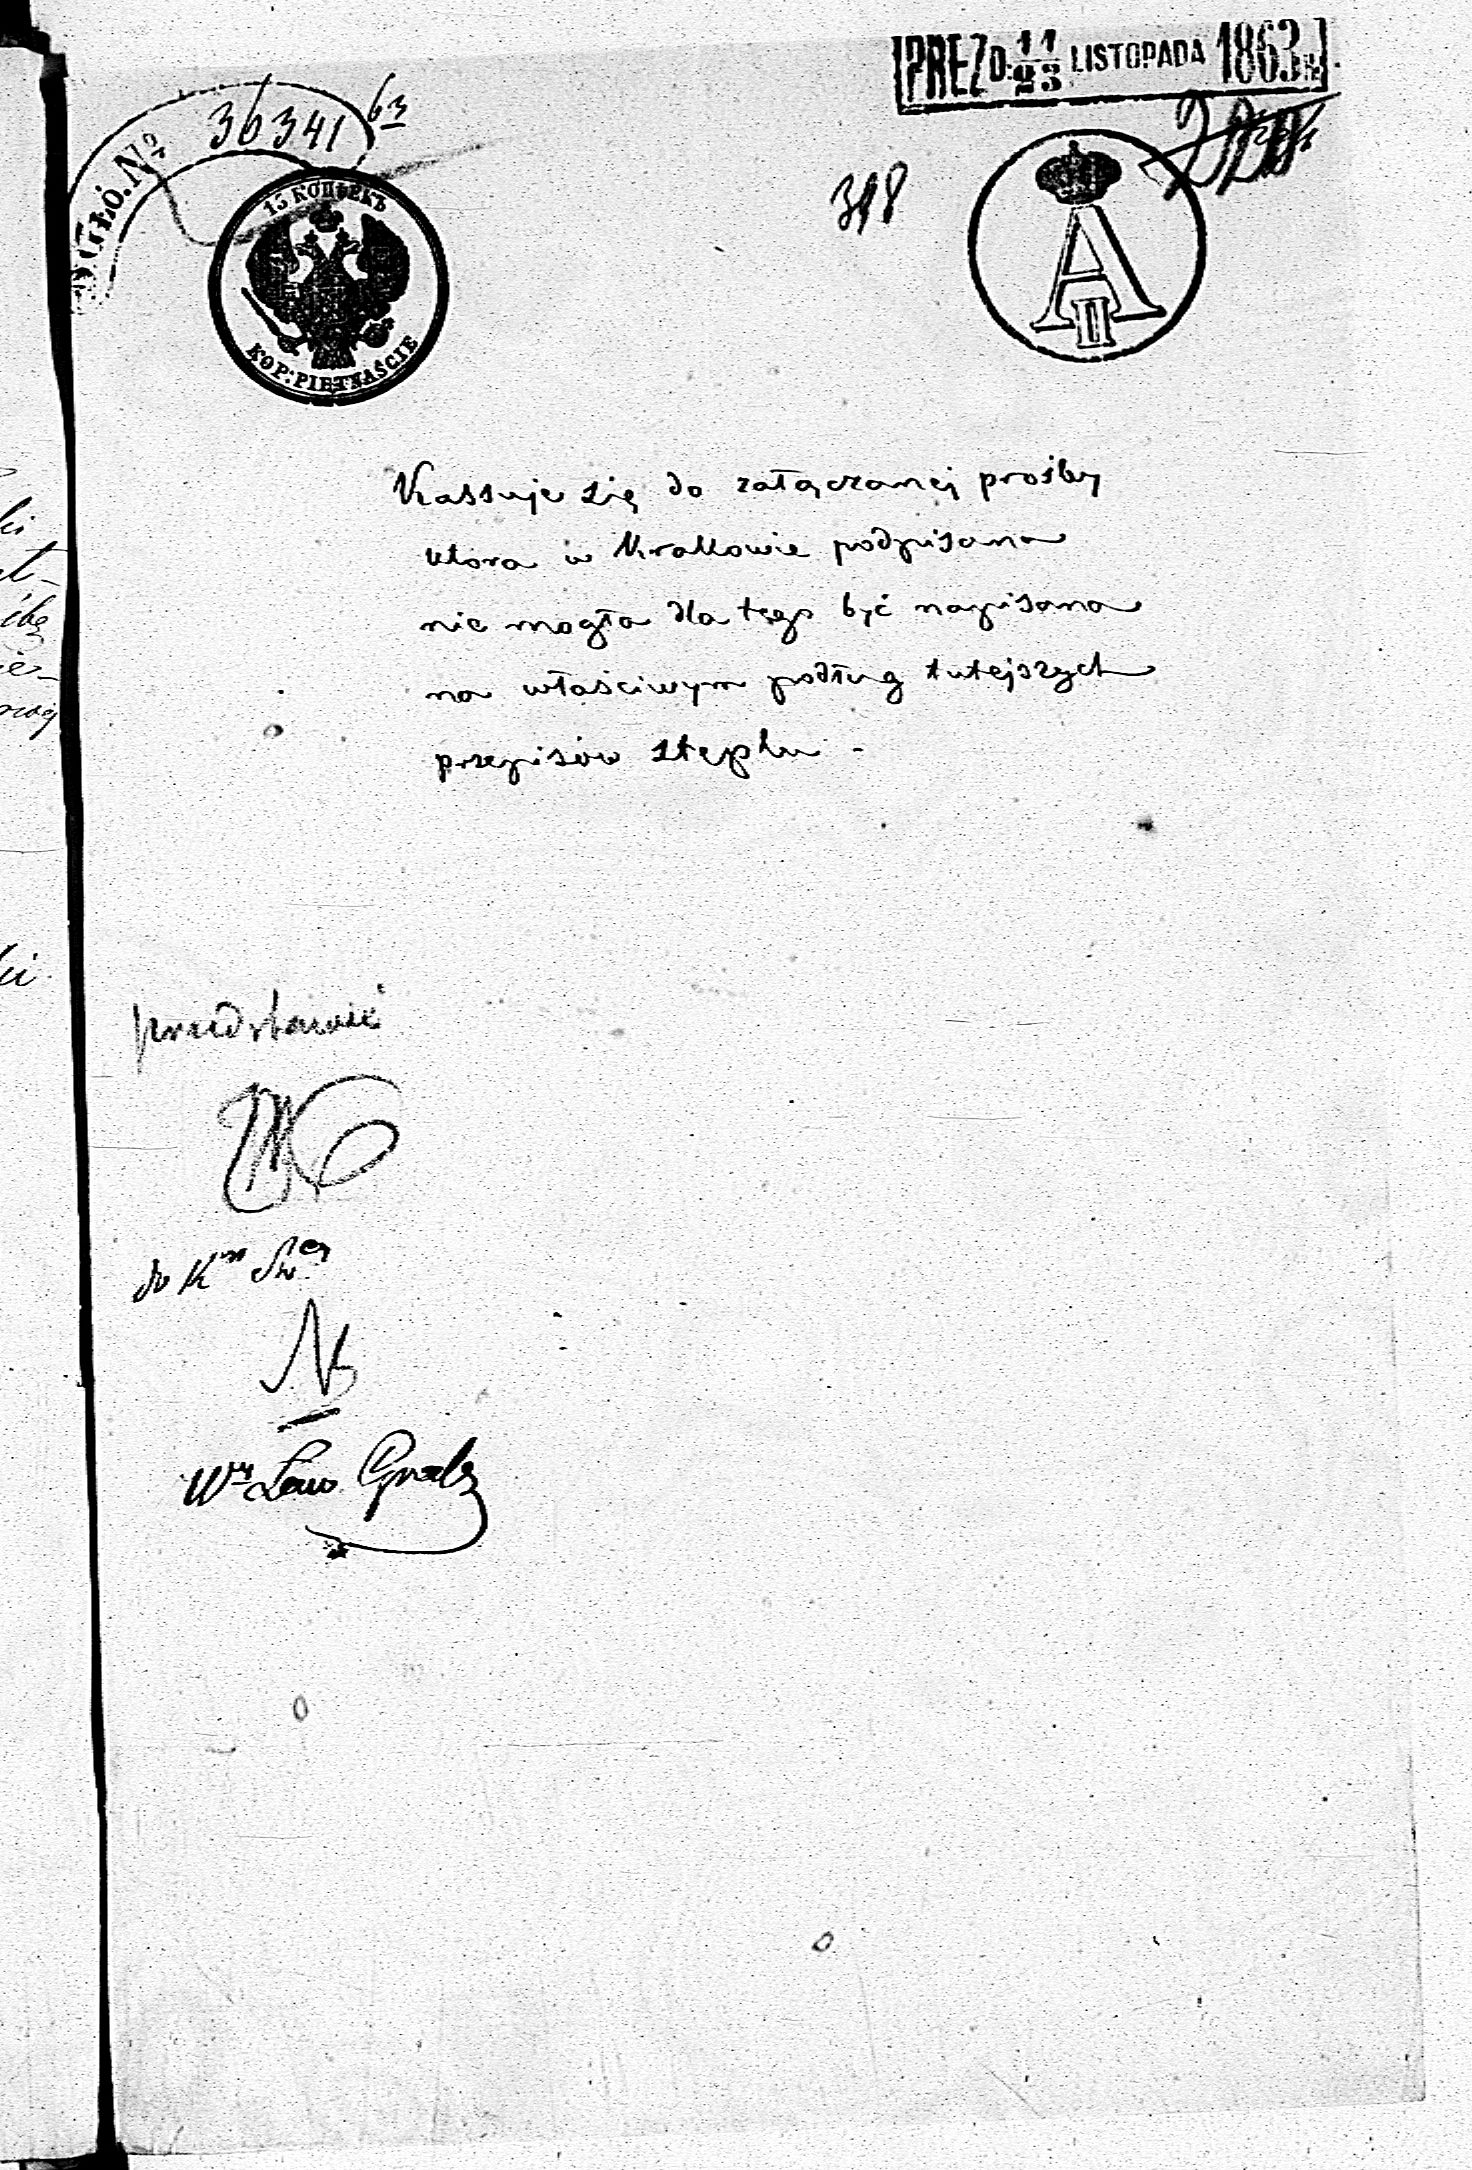 PREZ D. 11/23 LISTOPADA 1863 r.
№ 36341 63
398
15 КОПѢЕКЪ
KOP: PIĘTNAŚCIE
A II
Kassuje się do załączonej prośby
która w Krakowie podpisana
nie mogła dla tego być napisana
na właściwym podług tutejszych
przepisów stęplu -
przedstawić
do